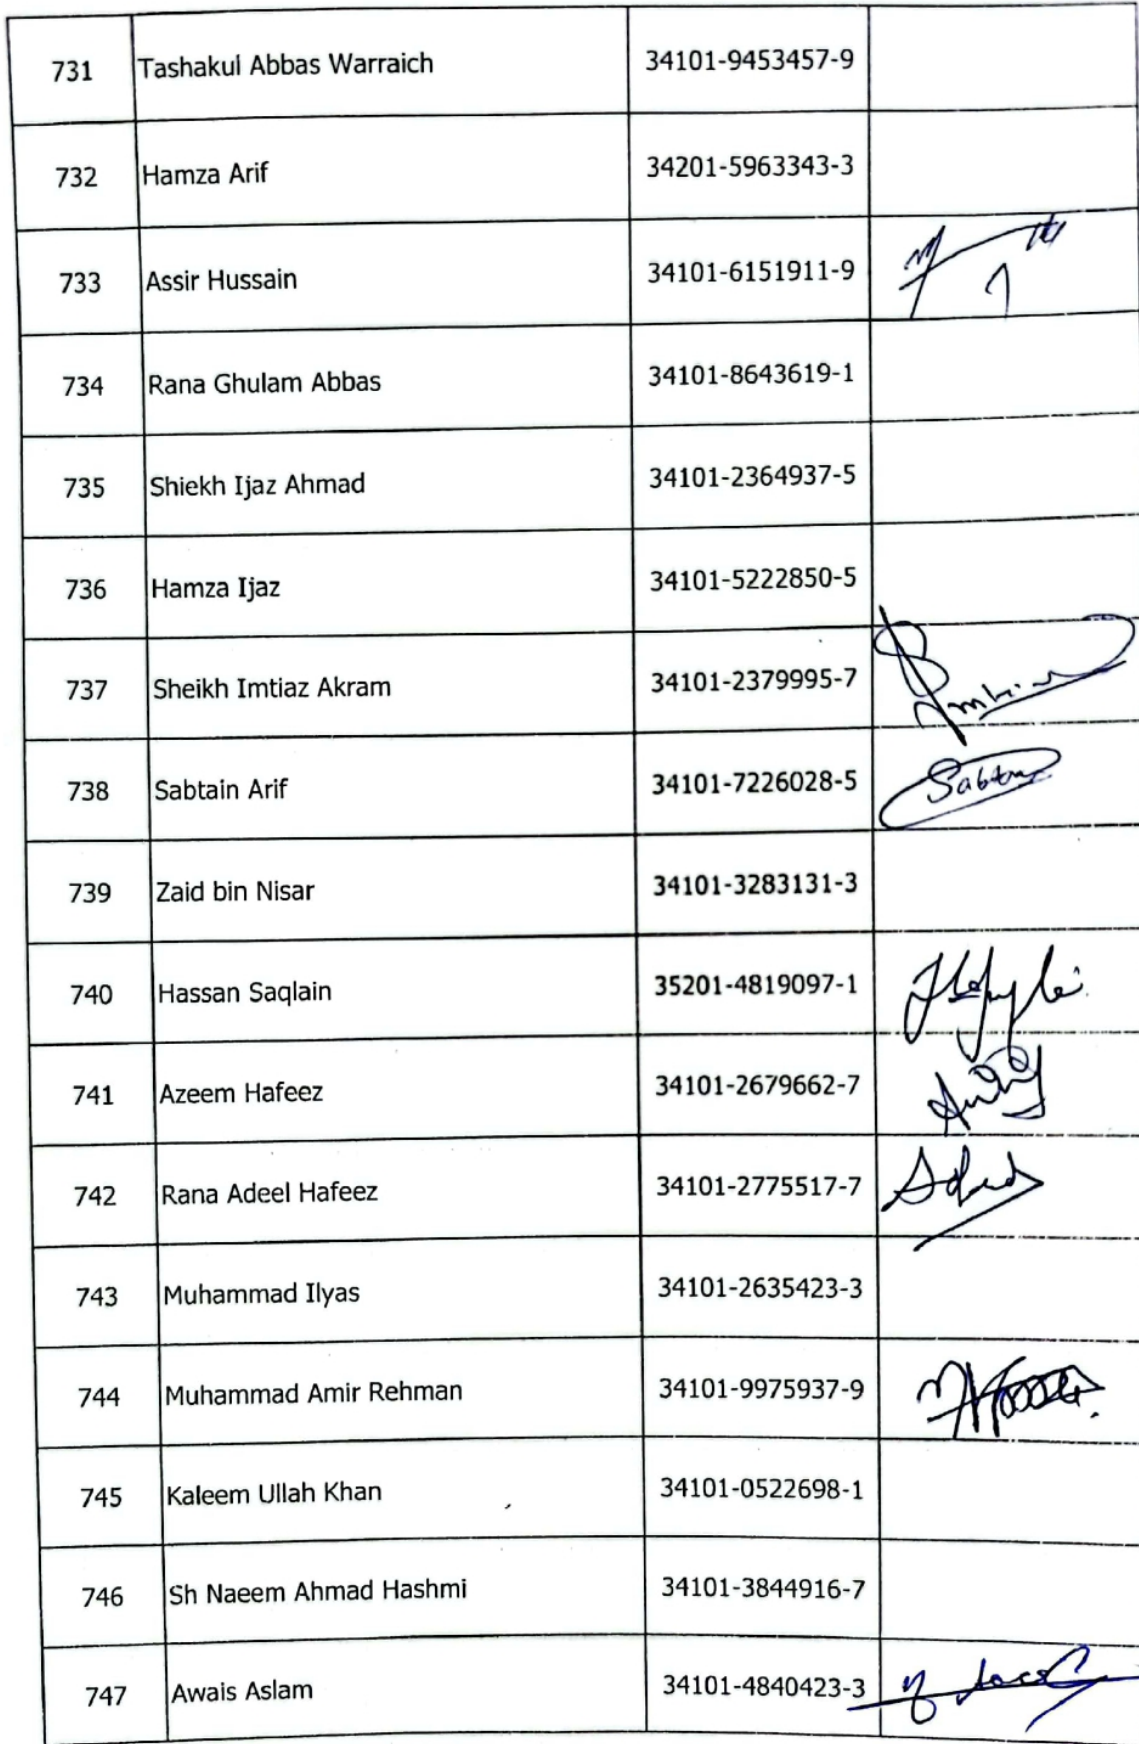 731 Tashakul Abbas Warraich 34101-9453457-9
732 Hamza Arif 34201-5963343-3
733 Assir Hussain 34101-6151911-9
734 Rana Ghulam Abbas 34101-8643619-1
735 Shiekh Ijaz Ahmad 34101-2364937-5
736 Hamza Ijaz 34101-5222850-5
737 Sheikh Imtiaz Akram 34101-2379995-7
738 Sabtain Arif 34101-7226028-5
739 Zaid bin Nisar 34101-3283131-3
740 Hassan Saqlain 35201-4819097-1
741 Azeem Hafeez 34101-2679662-7
742 Rana Adeel Hafeez 34101-2775517-7
743 Muhammad Ilyas 34101-2635423-3
744 Muhammad Amir Rehman 34101-9975937-9
745 Kaleem Ullah Khan 34101-0522698-1
746 Sh Naeem Ahmad Hashmi 34101-3844916-7
747 Awais Aslam 34101-4840423-3